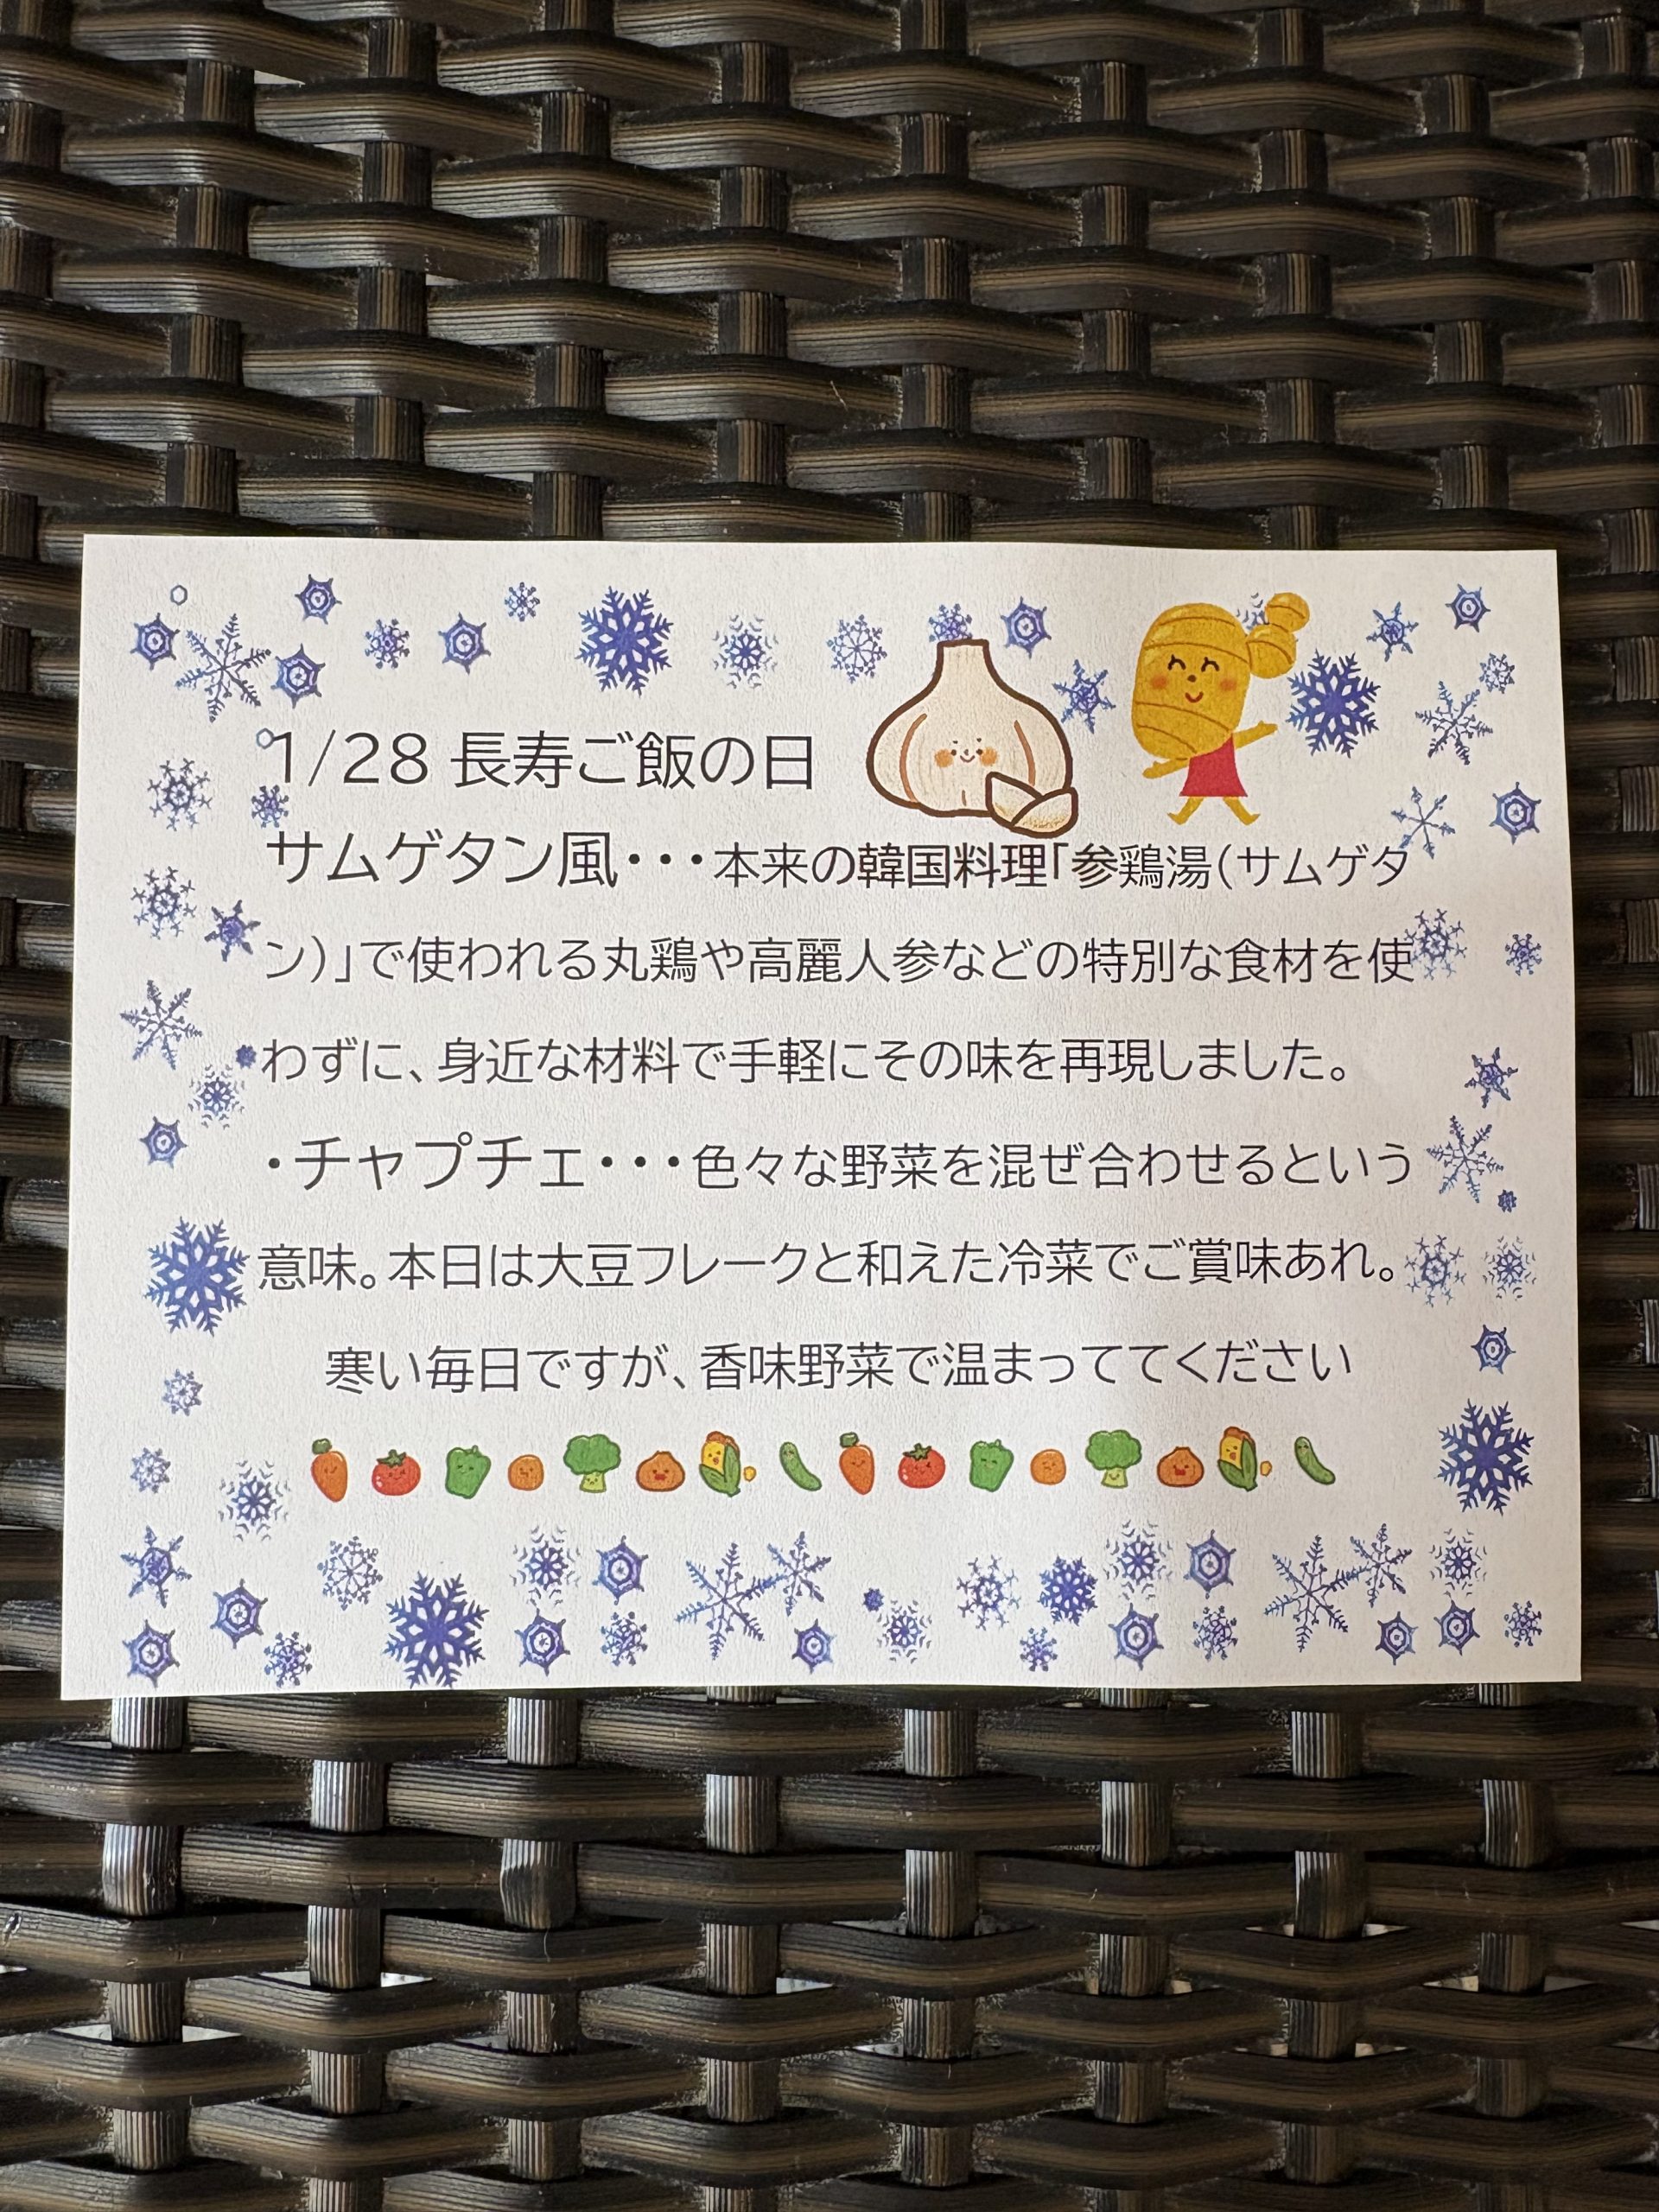 1/28 長寿ご飯の日
サムゲタン風・・・本来の韓国料理「参鶏湯(サムゲタ
ン)」で使われる丸鶏や高麗人参などの特別な食材を使
わずに、身近な材料で手軽にその味を再現しました。
・チャプチェ・・・色々な野菜を混ぜ合わせるという
意味。本日は大豆フレークと和えた冷菜でご賞味あれ。
寒い毎日ですが、香味野菜で温まっててください